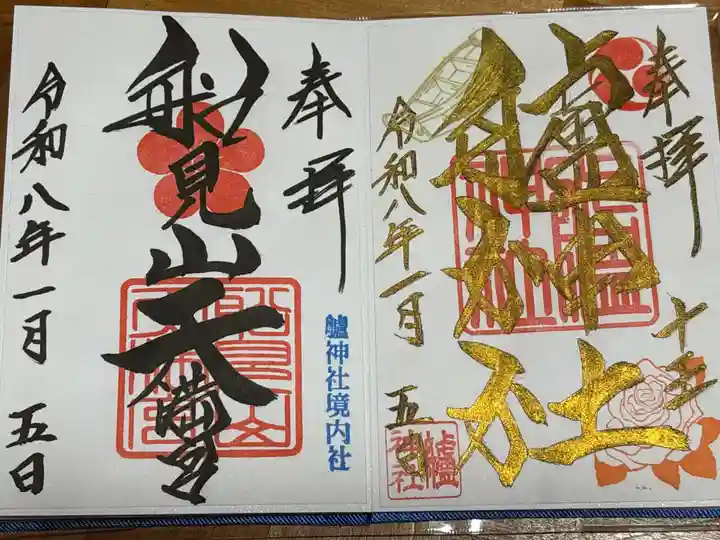 奉拝
鱸神社
令和八年一月五日
鱸神社
奉拝
船見山天満宮
鱸神社境内社
令和八年一月五日